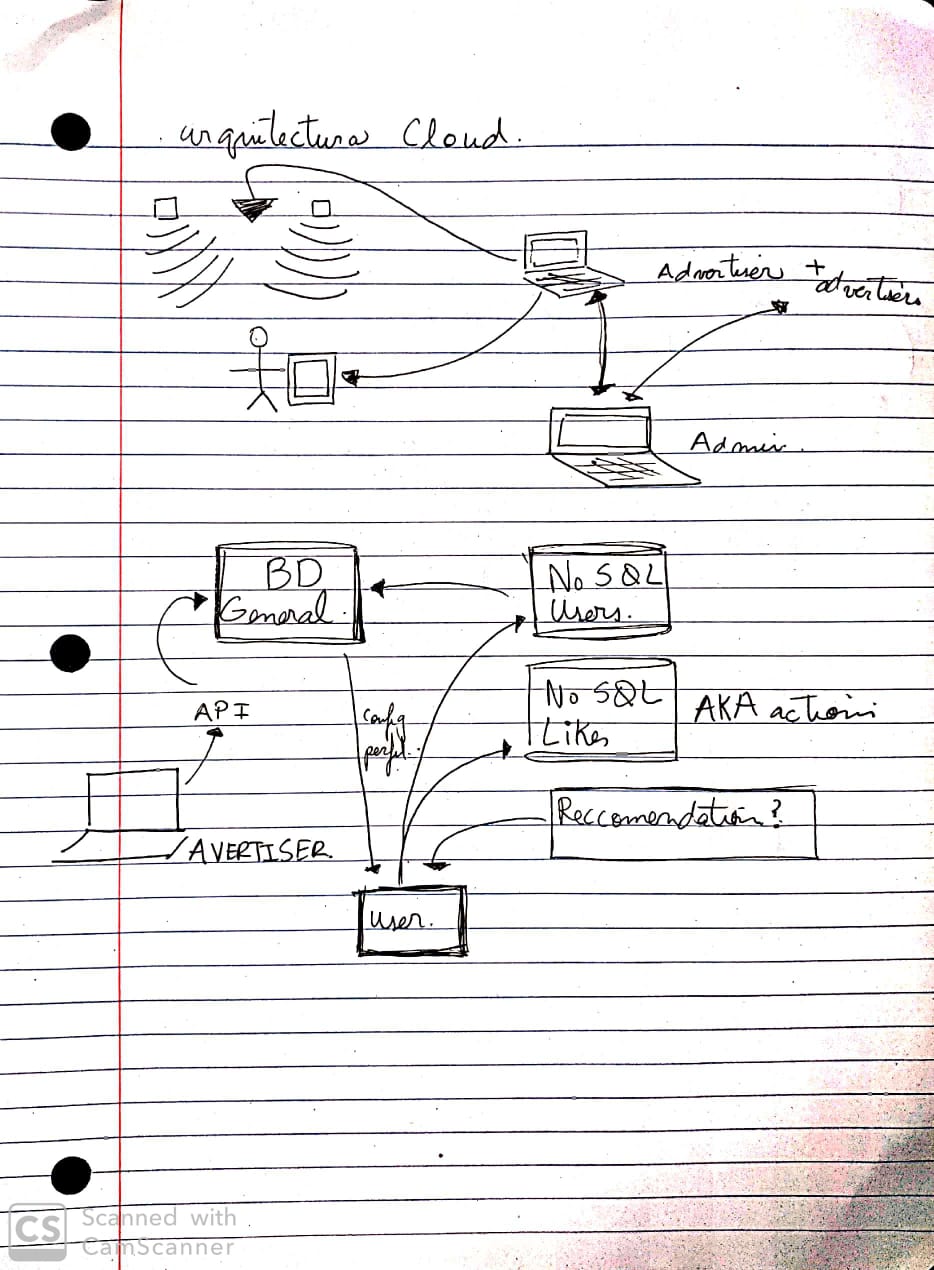 arquitectura Cloud.
Advertiser + advertisers
Admin.
BD
General.
No SQL
Users.
No SQL
Likes
AKA actions
API
Config
perfil.
Reccomendation?
AVERTISER.
user.
CS
Scanned with
CamScanner